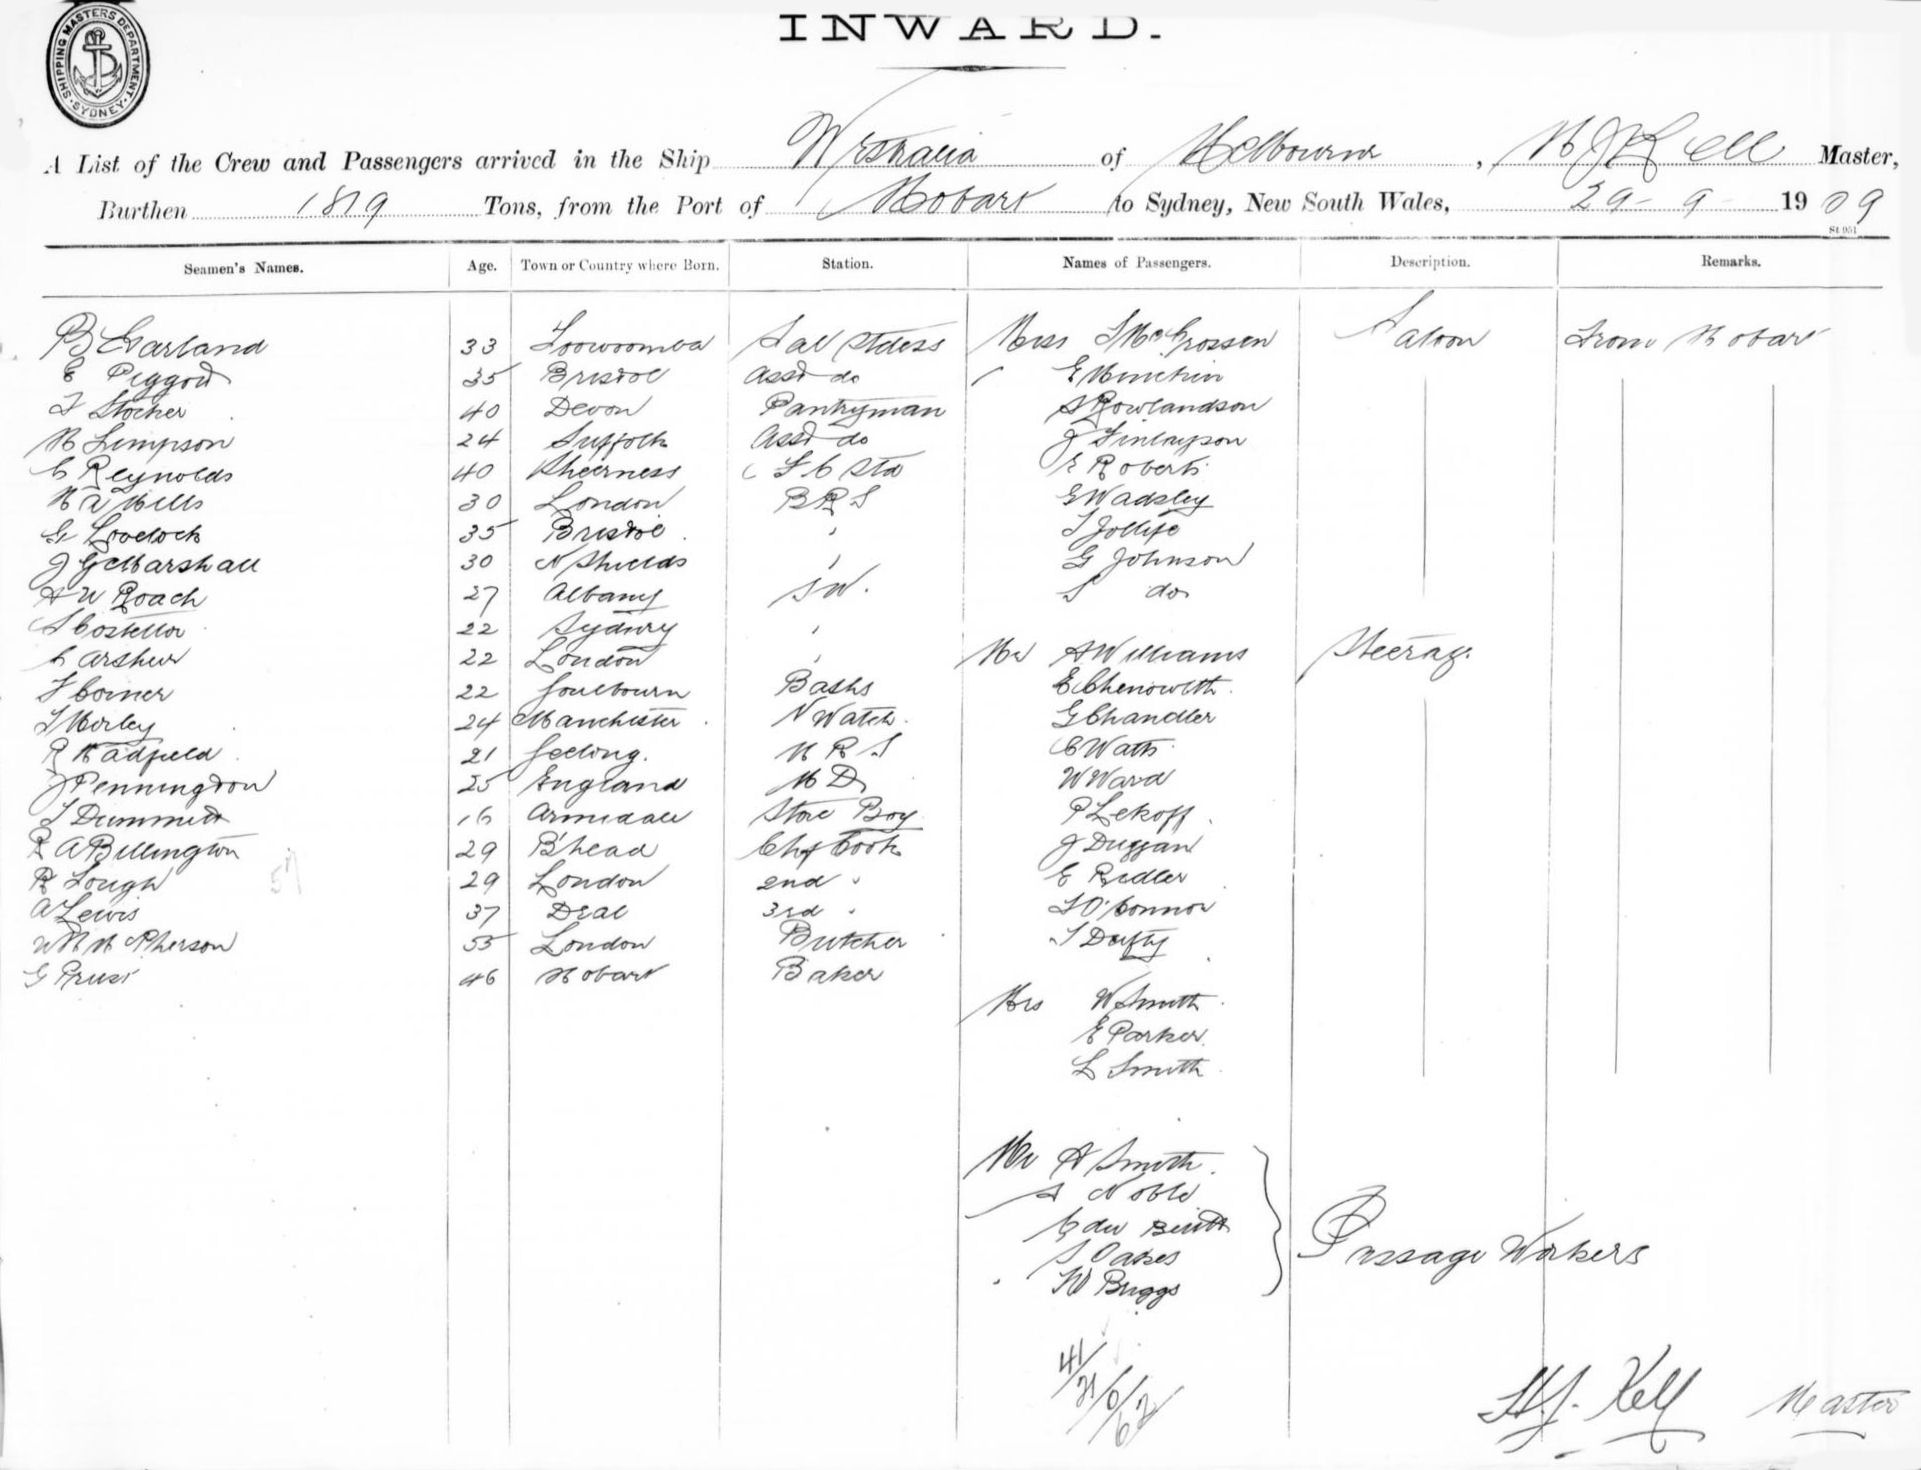 SHIPPING MASTERS DEPARTMENT · SYDNEY ·
INWARD.
A List of the Crew and Passengers arrived in the Ship Westralia of Melbourne, H J Kell Master,
Burthen 1819 Tons, from the Port of Hobart to Sydney, New South Wales, 29-9-1909
St 951
Seamen's Names. Age. Town or Country where Born. Station. Names of Passengers. Description. Remarks.
B Garland 33 Toowoomba Sal Stdess Miss McCrossen Saloon From Hobart
E Piggott 35 Bristol Asst do E Minchin
F Stocker 40 Devon Pantryman S Rowlandson
H Simpson 24 Suffolk Asst do J Finlayson
C Reynolds 40 Sheerness F C Std E Roberts
H A Mills 30 London B R S E Wadsley
G Lovelock 35 Bristol " T Jollife
J G Marshall 30 N Shields " G Johnson
A W Roach 27 Albany S W. S do
S Costellor 22 Sydney "
C Arthur 22 London " Mr A Williams Steerage
F Comer 22 Goulbourn Baths E Chenowith
T Morley 24 Manchester N Watch G Chandler
R Hadfield 21 Geelong. M R S C Watts
J Penningdon 25 England M D W Ward
T Dummett 16 Armidale Store Boy P Lekoff
R A Billington 29 B'head Chf Cook J Duggan
R Lough 29 London 2nd " E Ridler
A Lewis 37 Deal 3rd " T O'Connor
W H McPherson 55 London Butcher T Dufty
G Prust 46 Hobart Baker
Mrs W Smith
E Parker
L Smith
Mr A Smith
S Noble
S Oakes
W Briggs
Passage Workers
41/21/0/62
H.J. Kell Master